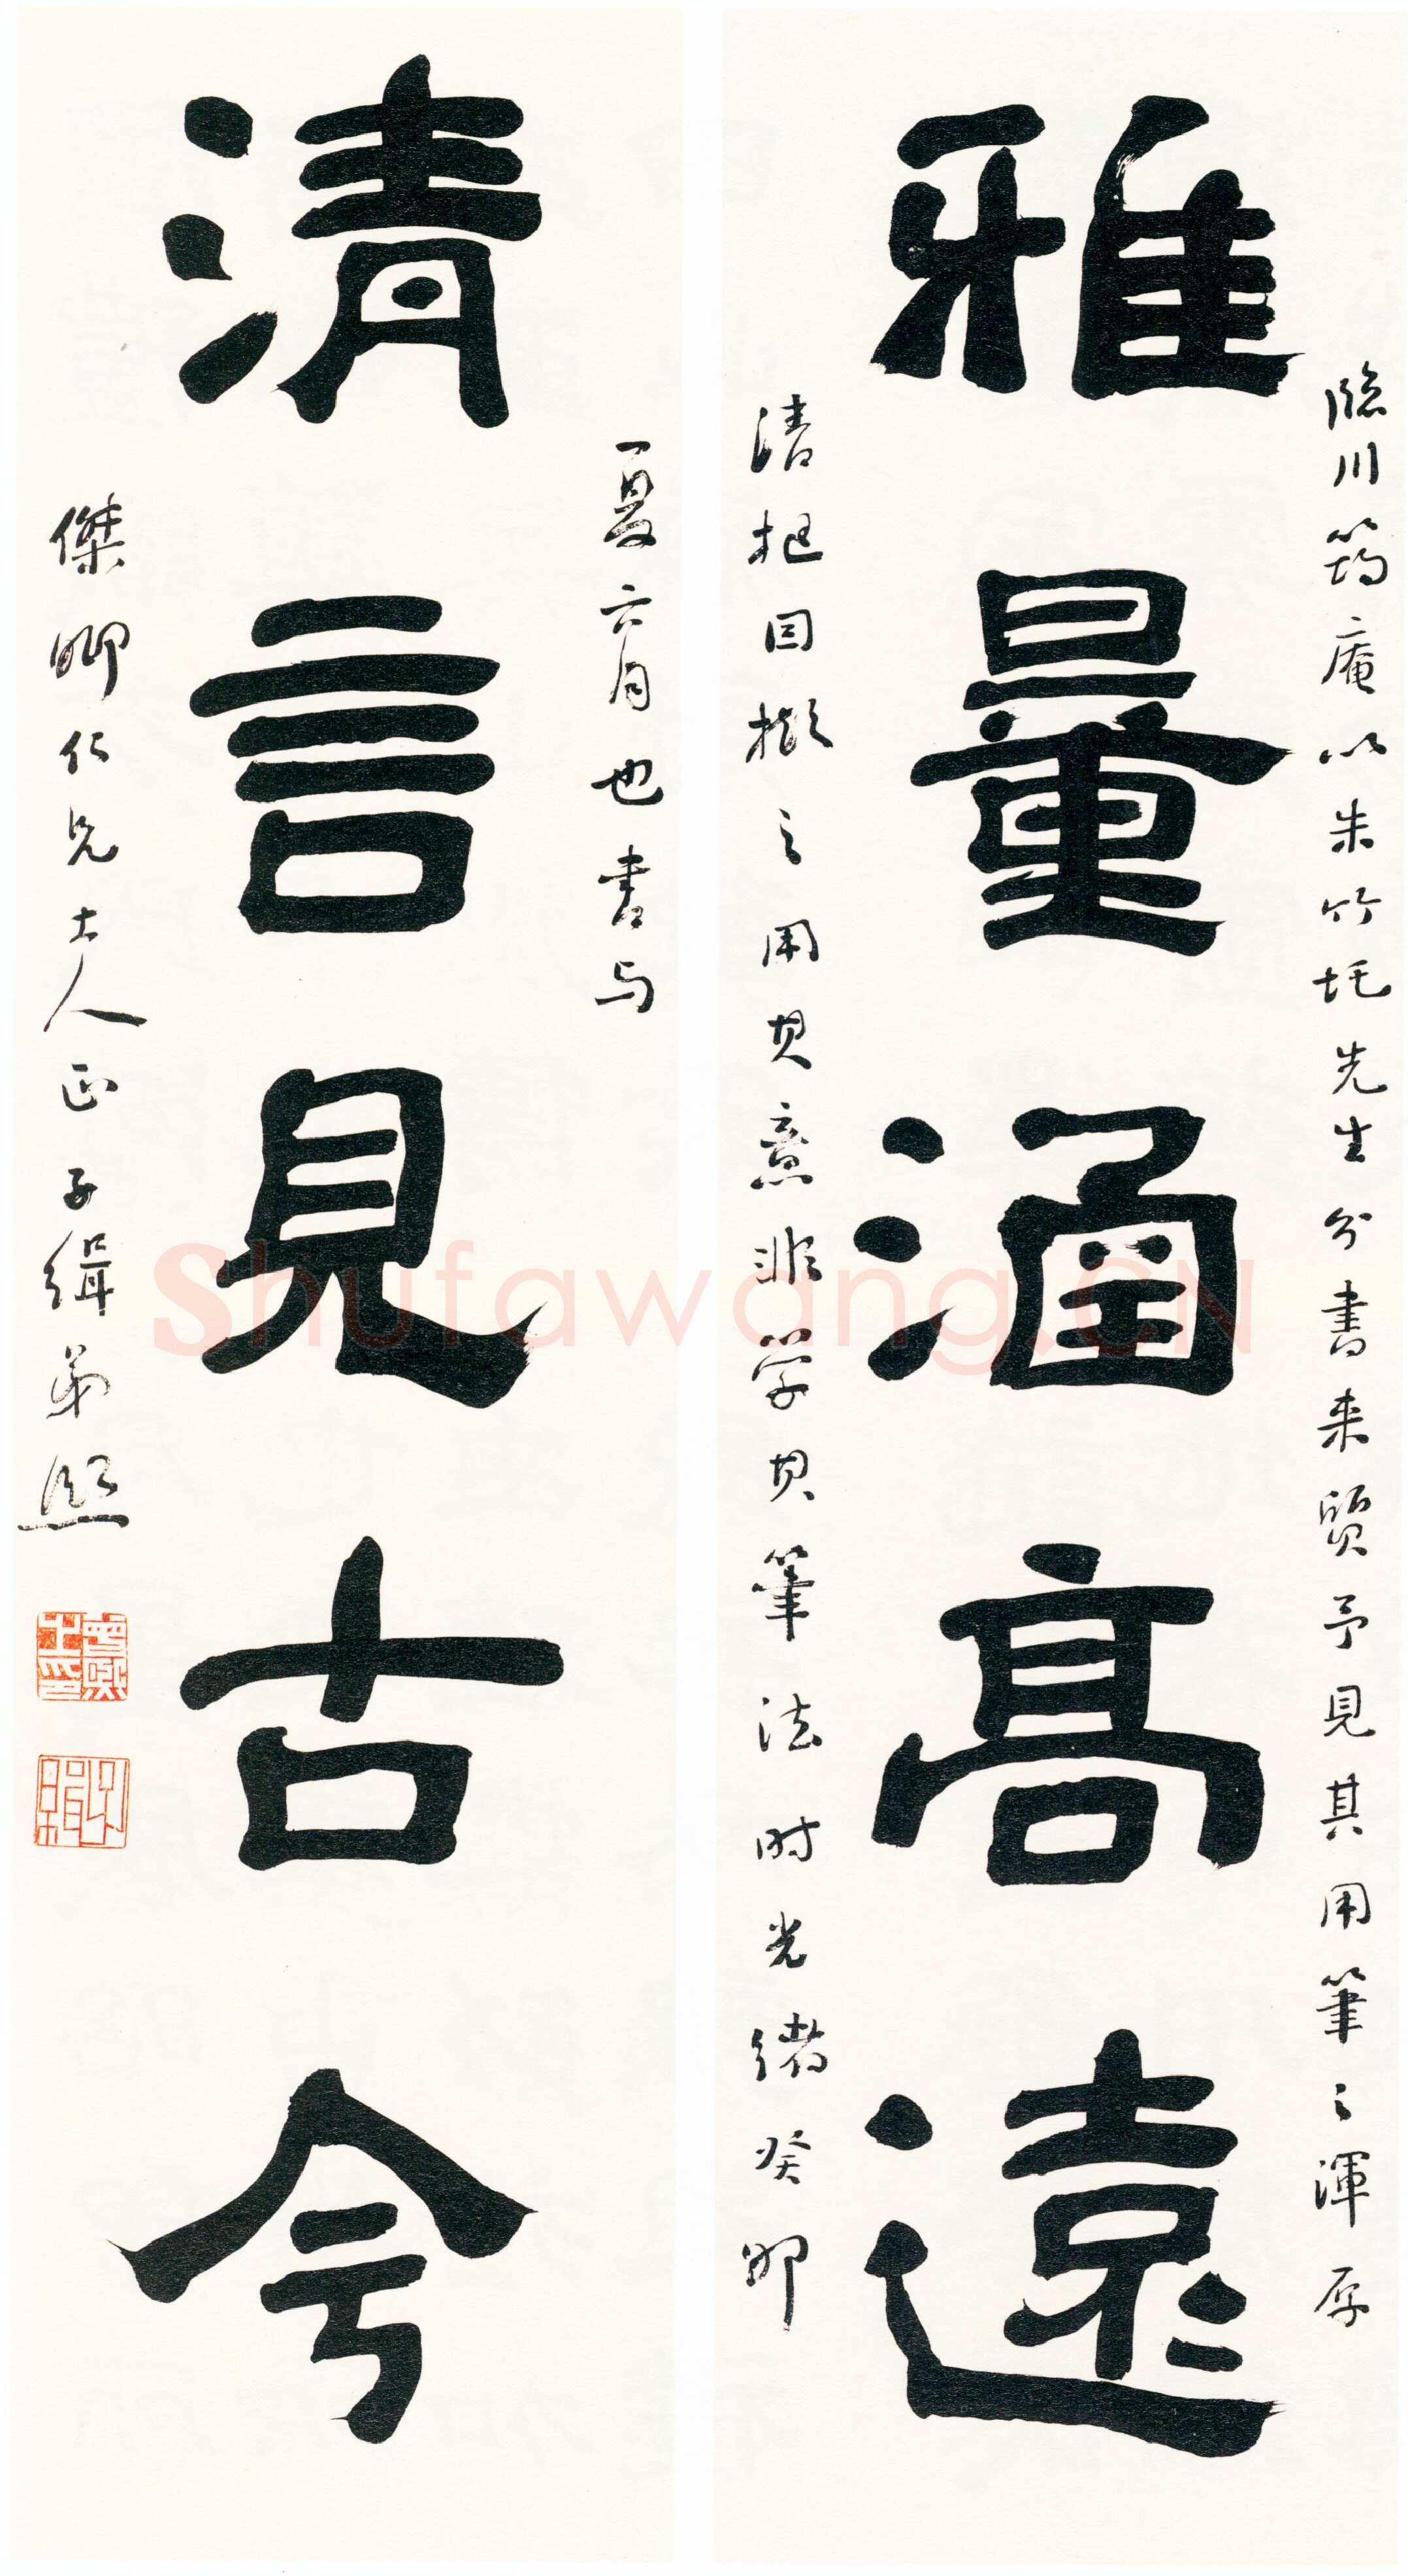 臨川筠庵以朱竹垞先生分書来質予見其用筆之渾厚
雅量涵高遠
清挺因擬之用其意非学其筆法时光緒癸卯
夏六月也書与
清言見古今
傑卿仁兄大人正 子緝弟熙
曾熙之印
Shufawang.CN